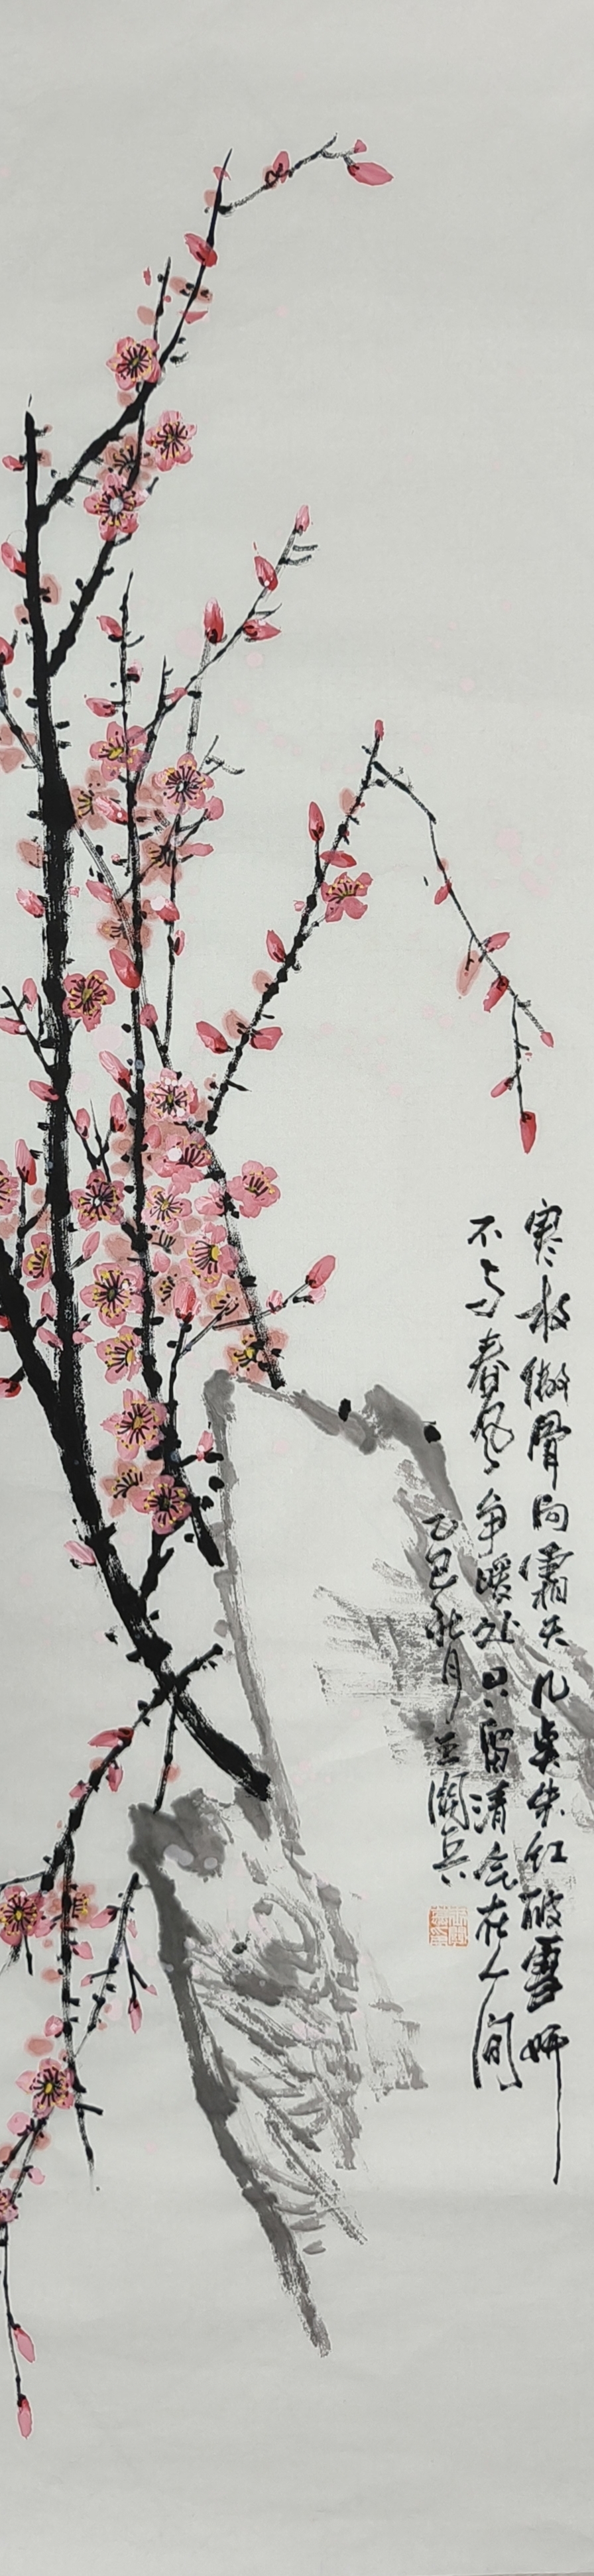 寒枝傲骨向霜天几点朱红破雪妍
不与春风争暖处只留清气在人间
乙巳秋月兰阁兵